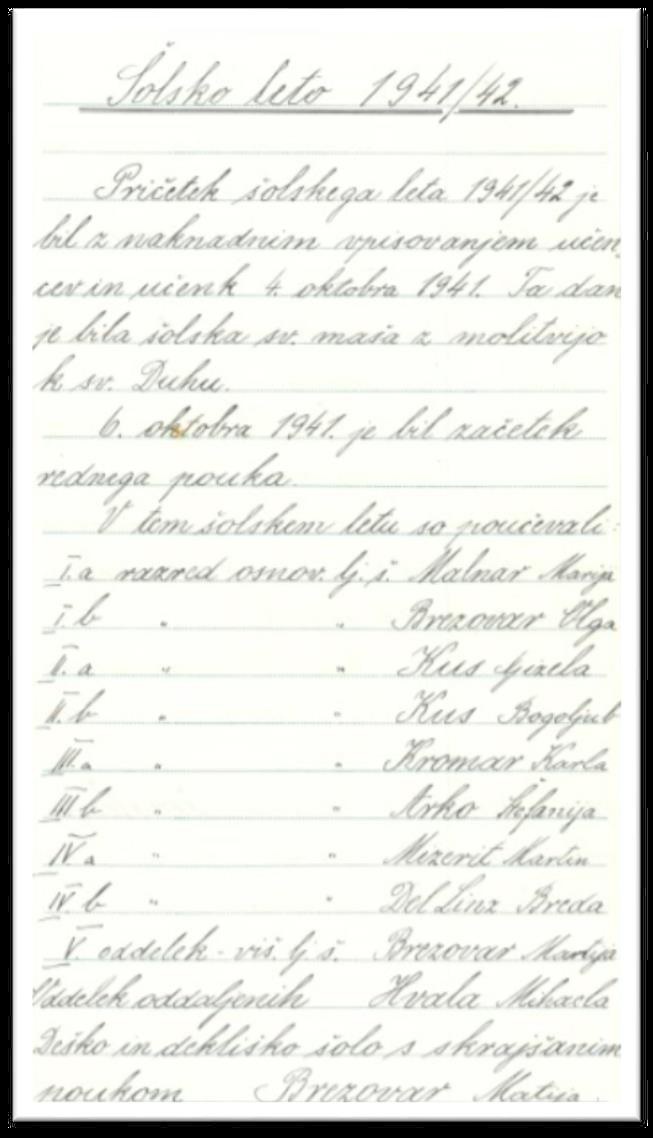 Šolsko leto 1941/42.
Pričetek šolskega leta 1941/42 je
bil z naknadnim vpisovanjem učen,
cev in učenk 4. oktobra 1941. Ta dan
je bila šolska sv. maša z molitvijo
k sv. Duhu.
6. oktobra 1941. je bil začetek
rednega pouka.
V tem šolskem letu so poučevali:
I. a razred osnov. lj. š. Malnar Marija
I. b " " Brezovar Olga
II. a " " Kus Gizela
II. b " " Kus Bogoljub
III. a " " Kromar Karla
III b " " Arko Štefanija
IV a " " Mizerit Martin
IV. b " " Del Linz Breda
V. oddelek - viš. lj. š. Brezovar Matija
Oddelek oddaljenih Hvala Mihaela
Deško in dekliško šolo s skrajšanim
poukom Brezovar Matija.